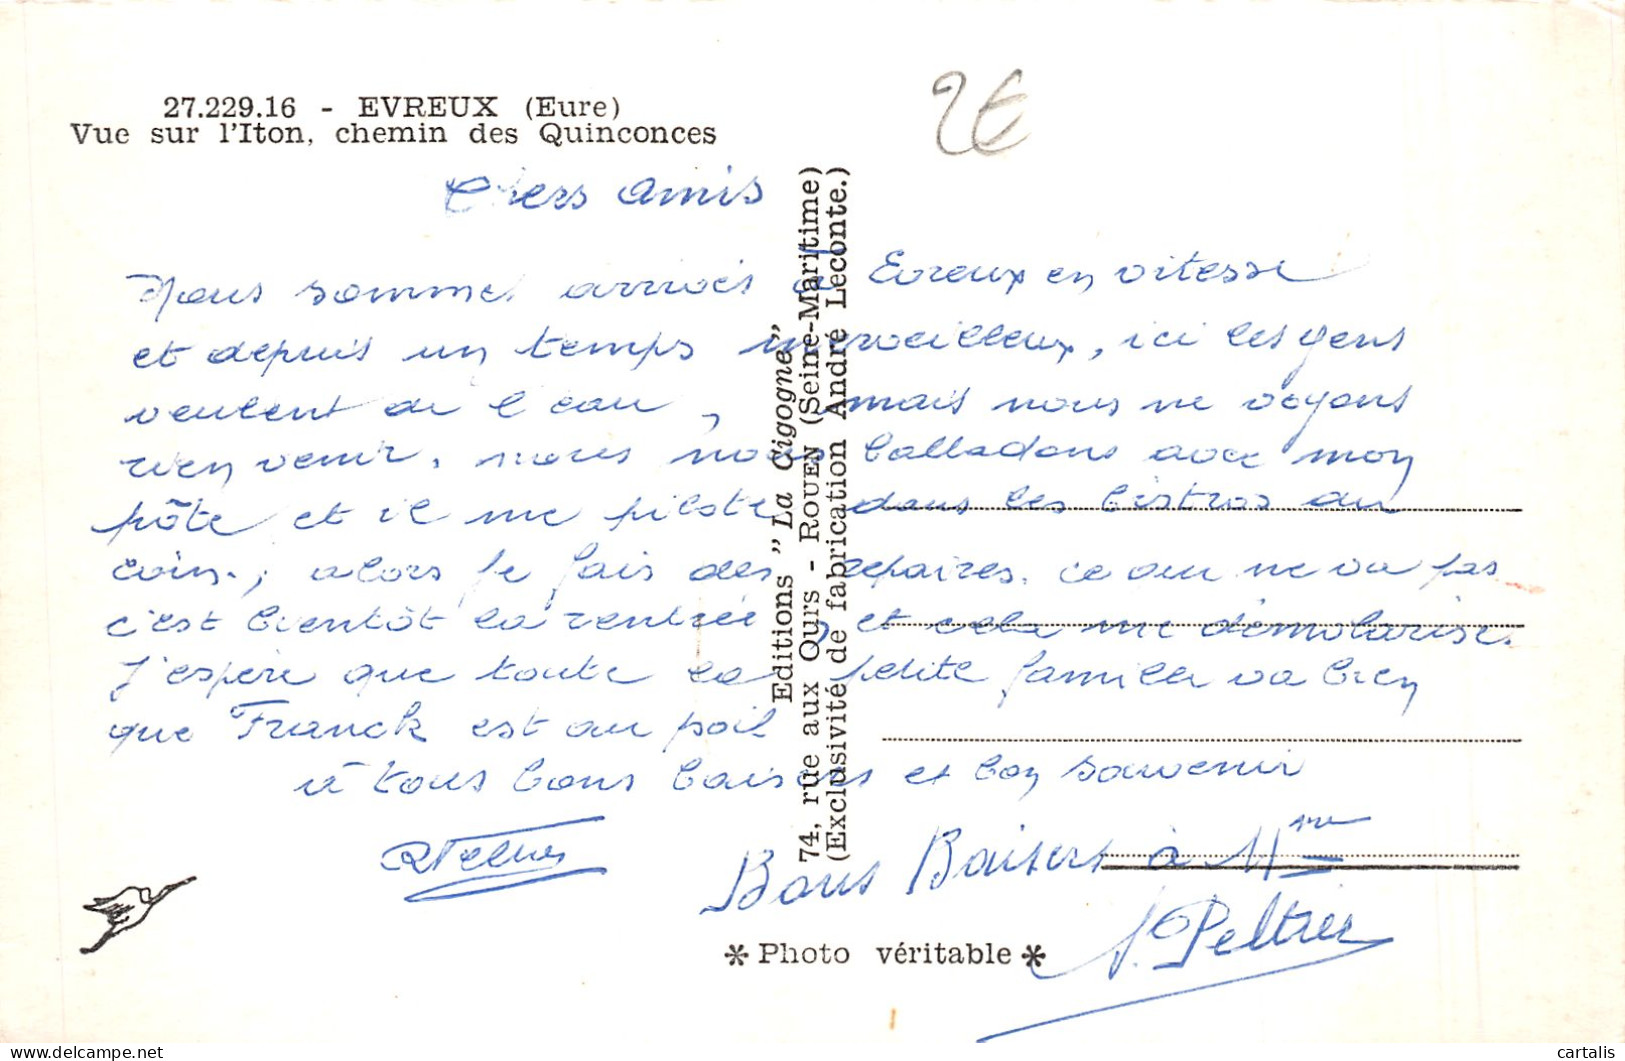 27.229.16 - EVREUX (Eure)
Vue sur l'Iton, chemin des Quinconces
2€
Chers amis
Nous sommes arrivés à Evreux en vitesse
et depuis un temps merveilleux, ici les gens
veulent de l'eau, mais nous ne voyons
rien venir, nous nous balladons avec mon
pôte et il me pilote dans les bistros du
coin., alors je fais des repaires. ce qui ne va pas
c'est bientôt la rentrée, et cela me démolarise.
J'espère que toute la petite famille va bien
que Franck est au poil
à tous bons baisers et bon souvenir
Bons Baisers à Mme
Peltier
Editions "La Cigogne"
74, rue aux Ours - ROUEN (Seine-Maritime)
(Exclusivité de fabrication André Leconte.)
* Photo véritable *
cartalis